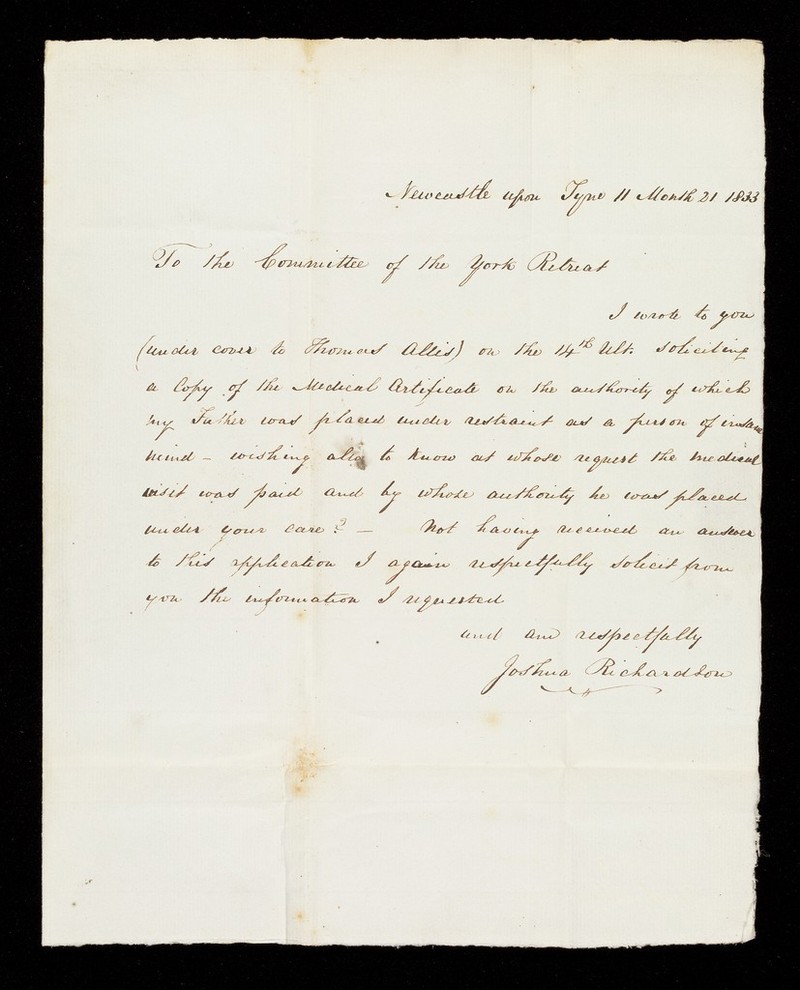 Newcastle upon Tyne 11 Month 21 1833
To the Committee of the York Retreat
I wrote to you
(under cover to Thomas Allis) on the 14th Ult. soliciting
a Copy of the Medical Certificate on the authority of which
my Father was placed under restraint as a person of insane
mind - wishing also to know at whose request the medical
visit was paid and by whose authority he was placed
under your care? - Not having received an answer
to this application I again respectfully solicit from
you the information I requested
and am respectfully
Joshua Richardson